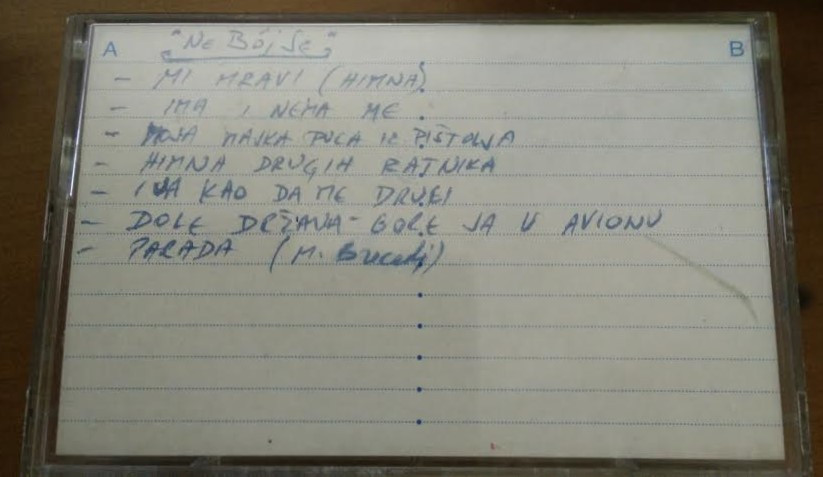 A "Ne Bój se" B
- MI MRAVI (HIMNA)
- IMA I NEMA ME
- MOJA MAJKA PUCA IZ PIŠTOLJA
- HIMNA DRUGIH RATNIKA
- I JA KAO DA ME DRUGI
- DOLE DRŽAVA - GORE JA U AVIONU
- PARADA (M.